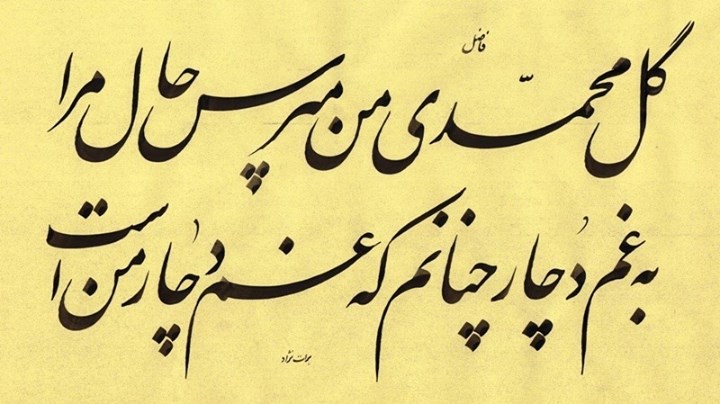 فاضل
گل محمّدی من مپرس حال مرا
به غم دُچار چنانم که غم دُچار من است
برات نژاد